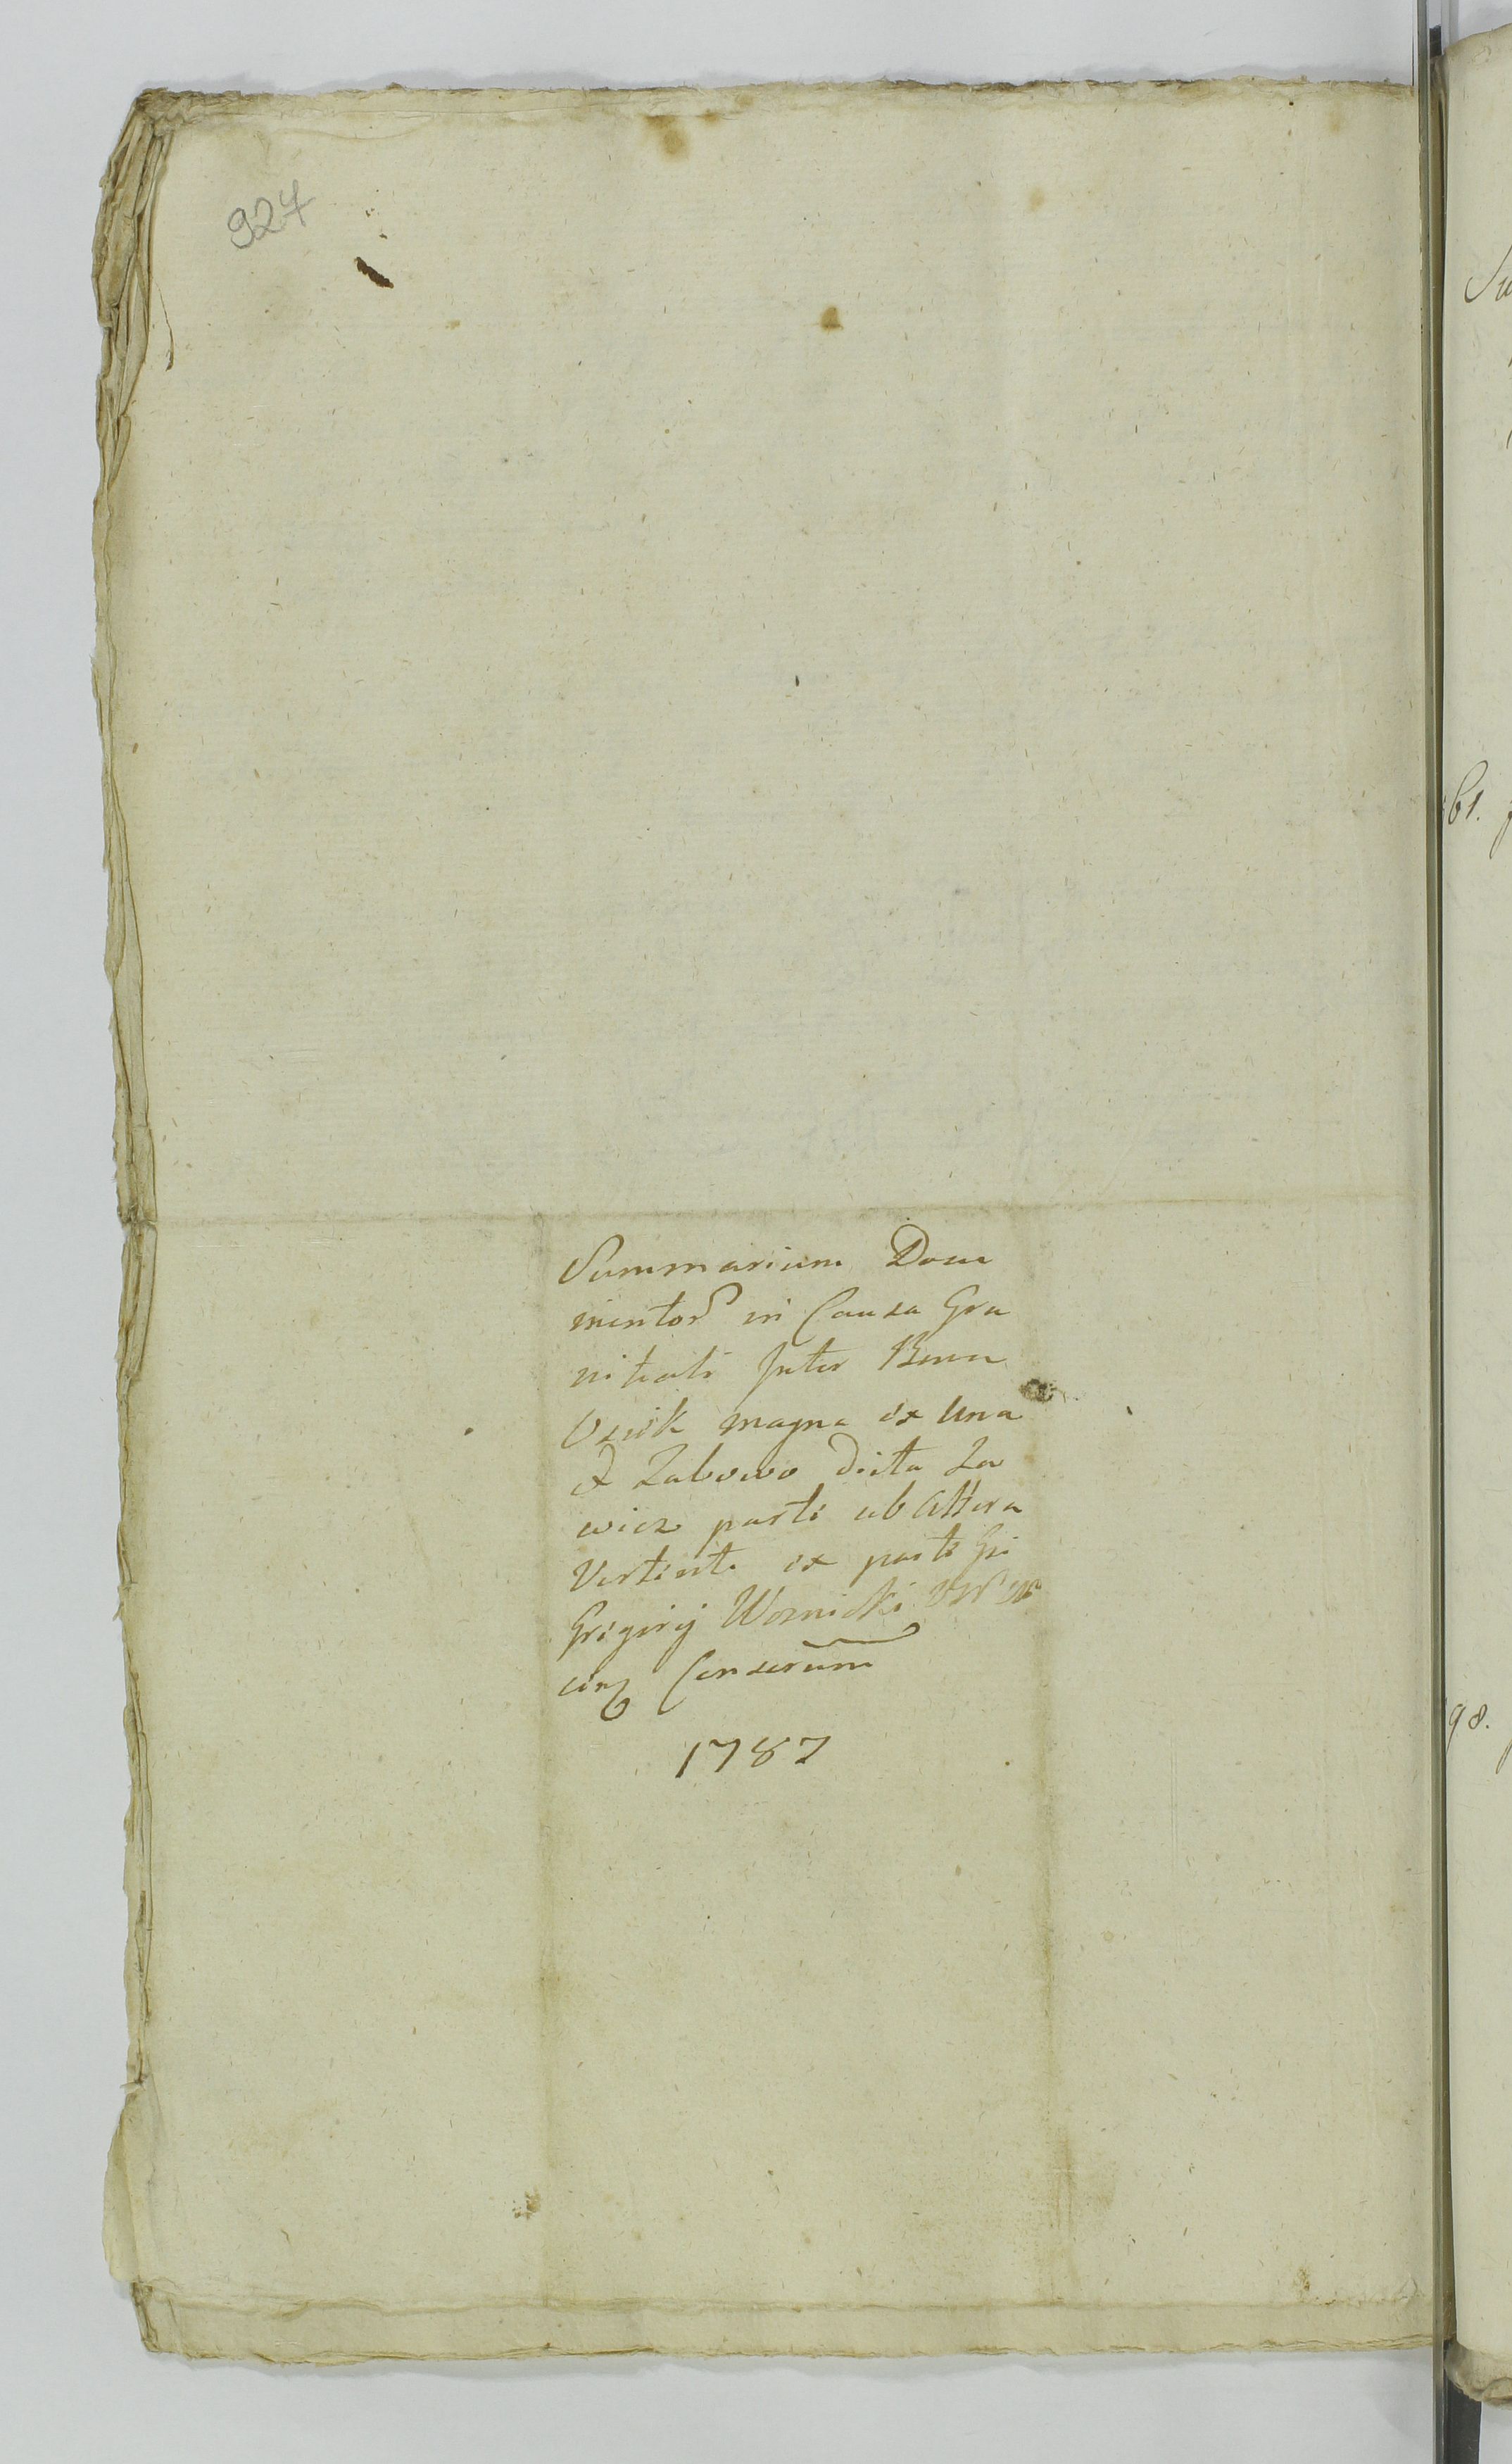 924
Summarium Docu
mentor in Causa Gra
nitiali Inter Bona
Osiek magna ex Una
et Zabowo dicta Za
wicz parte ab Altera
Vertente ex parte
Grigorij Woznicki
Conserum
1787